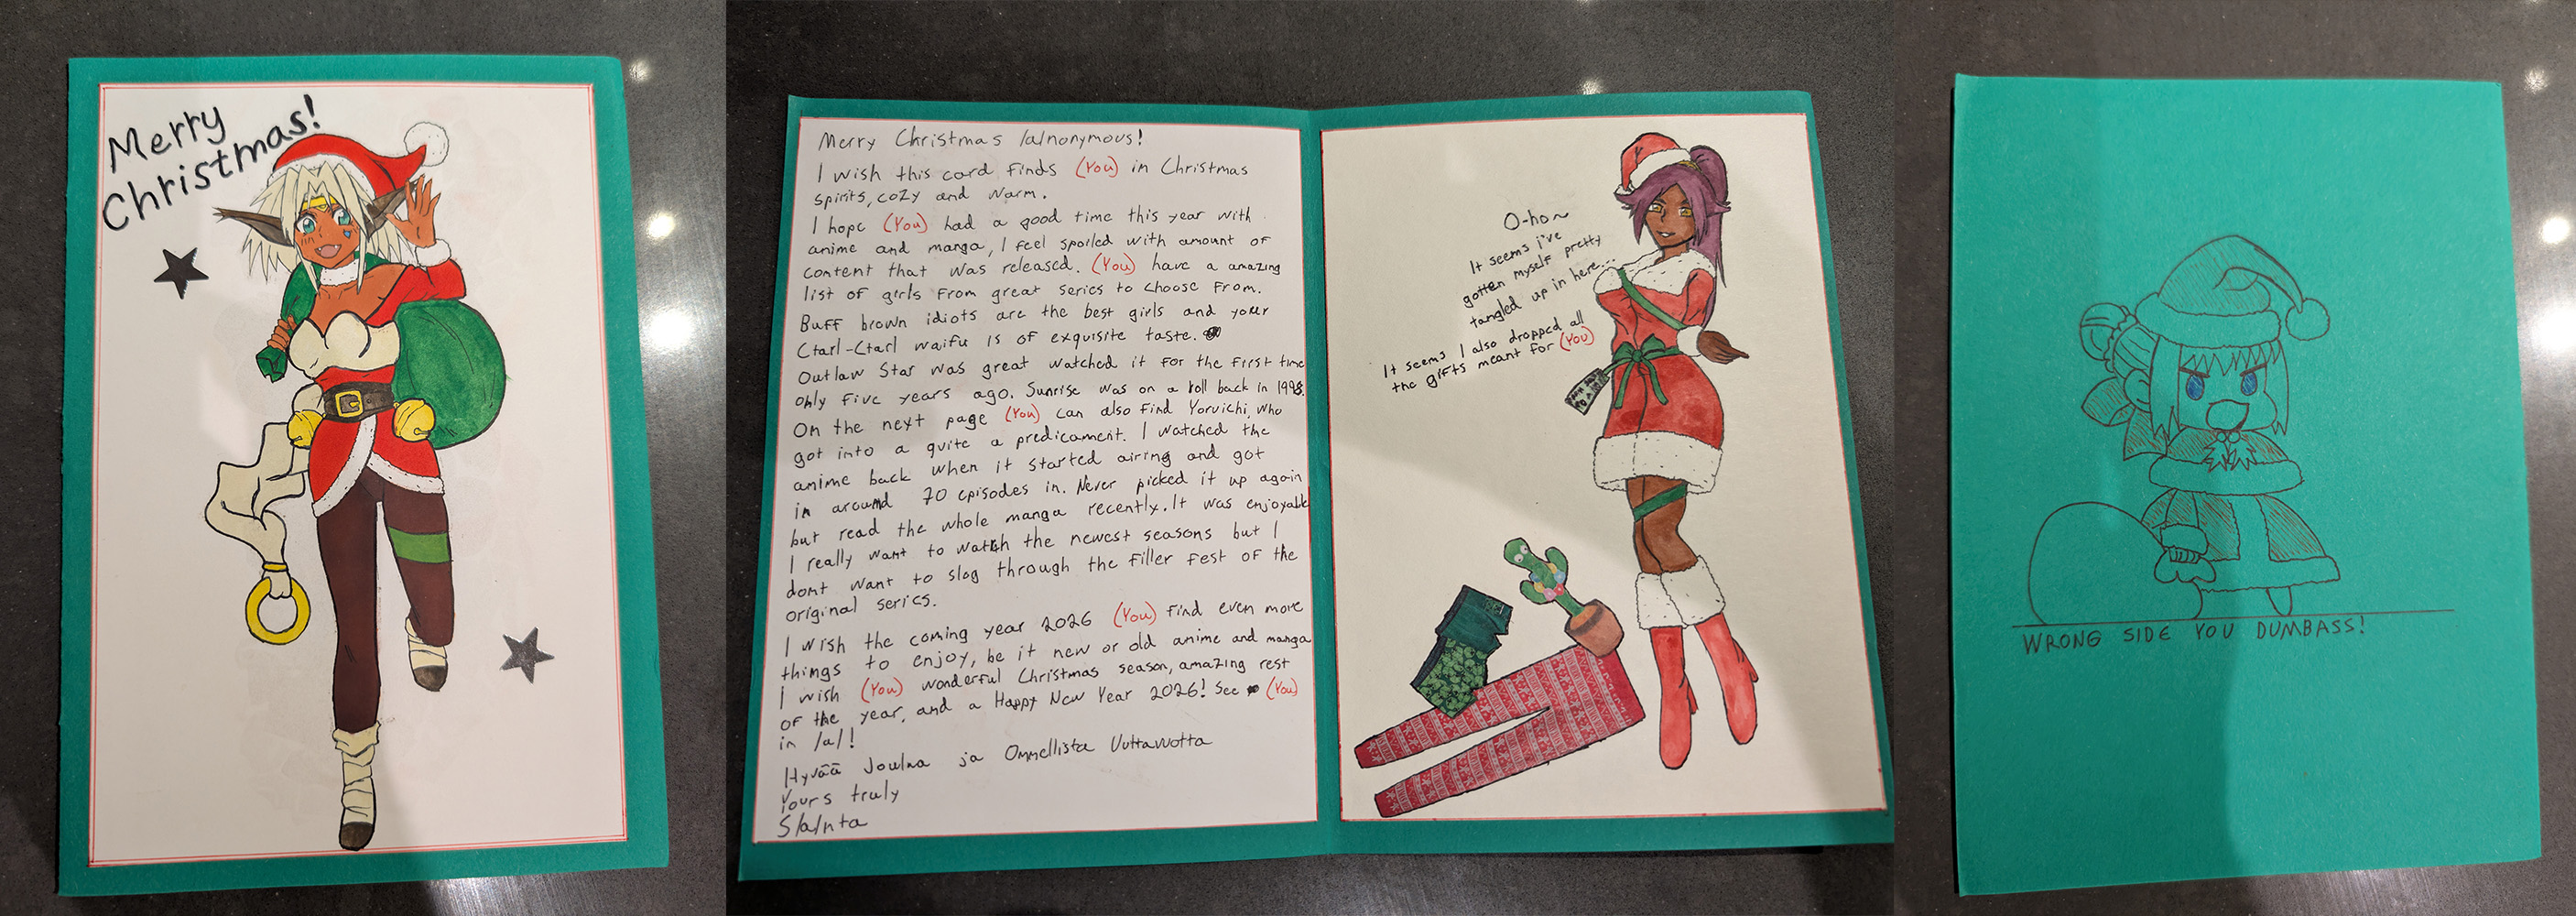 Merry
Christmas!
Merry Christmas /a/nonymous!
I wish this card finds (You) in Christmas
spirits, cozy and warm.
I hope (You) had a good time this year with
anime and manga, I feel spoiled with amount of
content that was released. (You) have a amazing
list of girls from great series to choose from.
Buff brown idiots are the best girls and your
Ctarl-Ctarl waifu is of exquisite taste.
Outlaw Star was great watched it for the first time
only five years ago. Sunrise was on a roll back in 1998.
On the next page (You) can also find Yoruichi, who
got into a quite a predicament. I watched the
anime back when it started airing and got
in around 70 episodes in. Never picked it up again
but read the whole manga recently. It was enjoyable
I really want to watch the newest seasons but I
dont want to slog through the filler fest of the
original series.
I wish the coming year 2026 (You) find even more
things to enjoy, be it new or old anime and manga
I wish (You) wonderful Christmas season, amazing rest
of the year, and a Happy New Year 2026! See (You)
in /a/!
Hyvää Joulua ja Onnellista Uuttavuotta
Yours truly
S/a/nta
O-ho~
It seems i've
gotten myself pretty
tangled up in here...
It seems I also dropped all
the gifts meant for (You)
WRONG SIDE YOU DUMBASS!